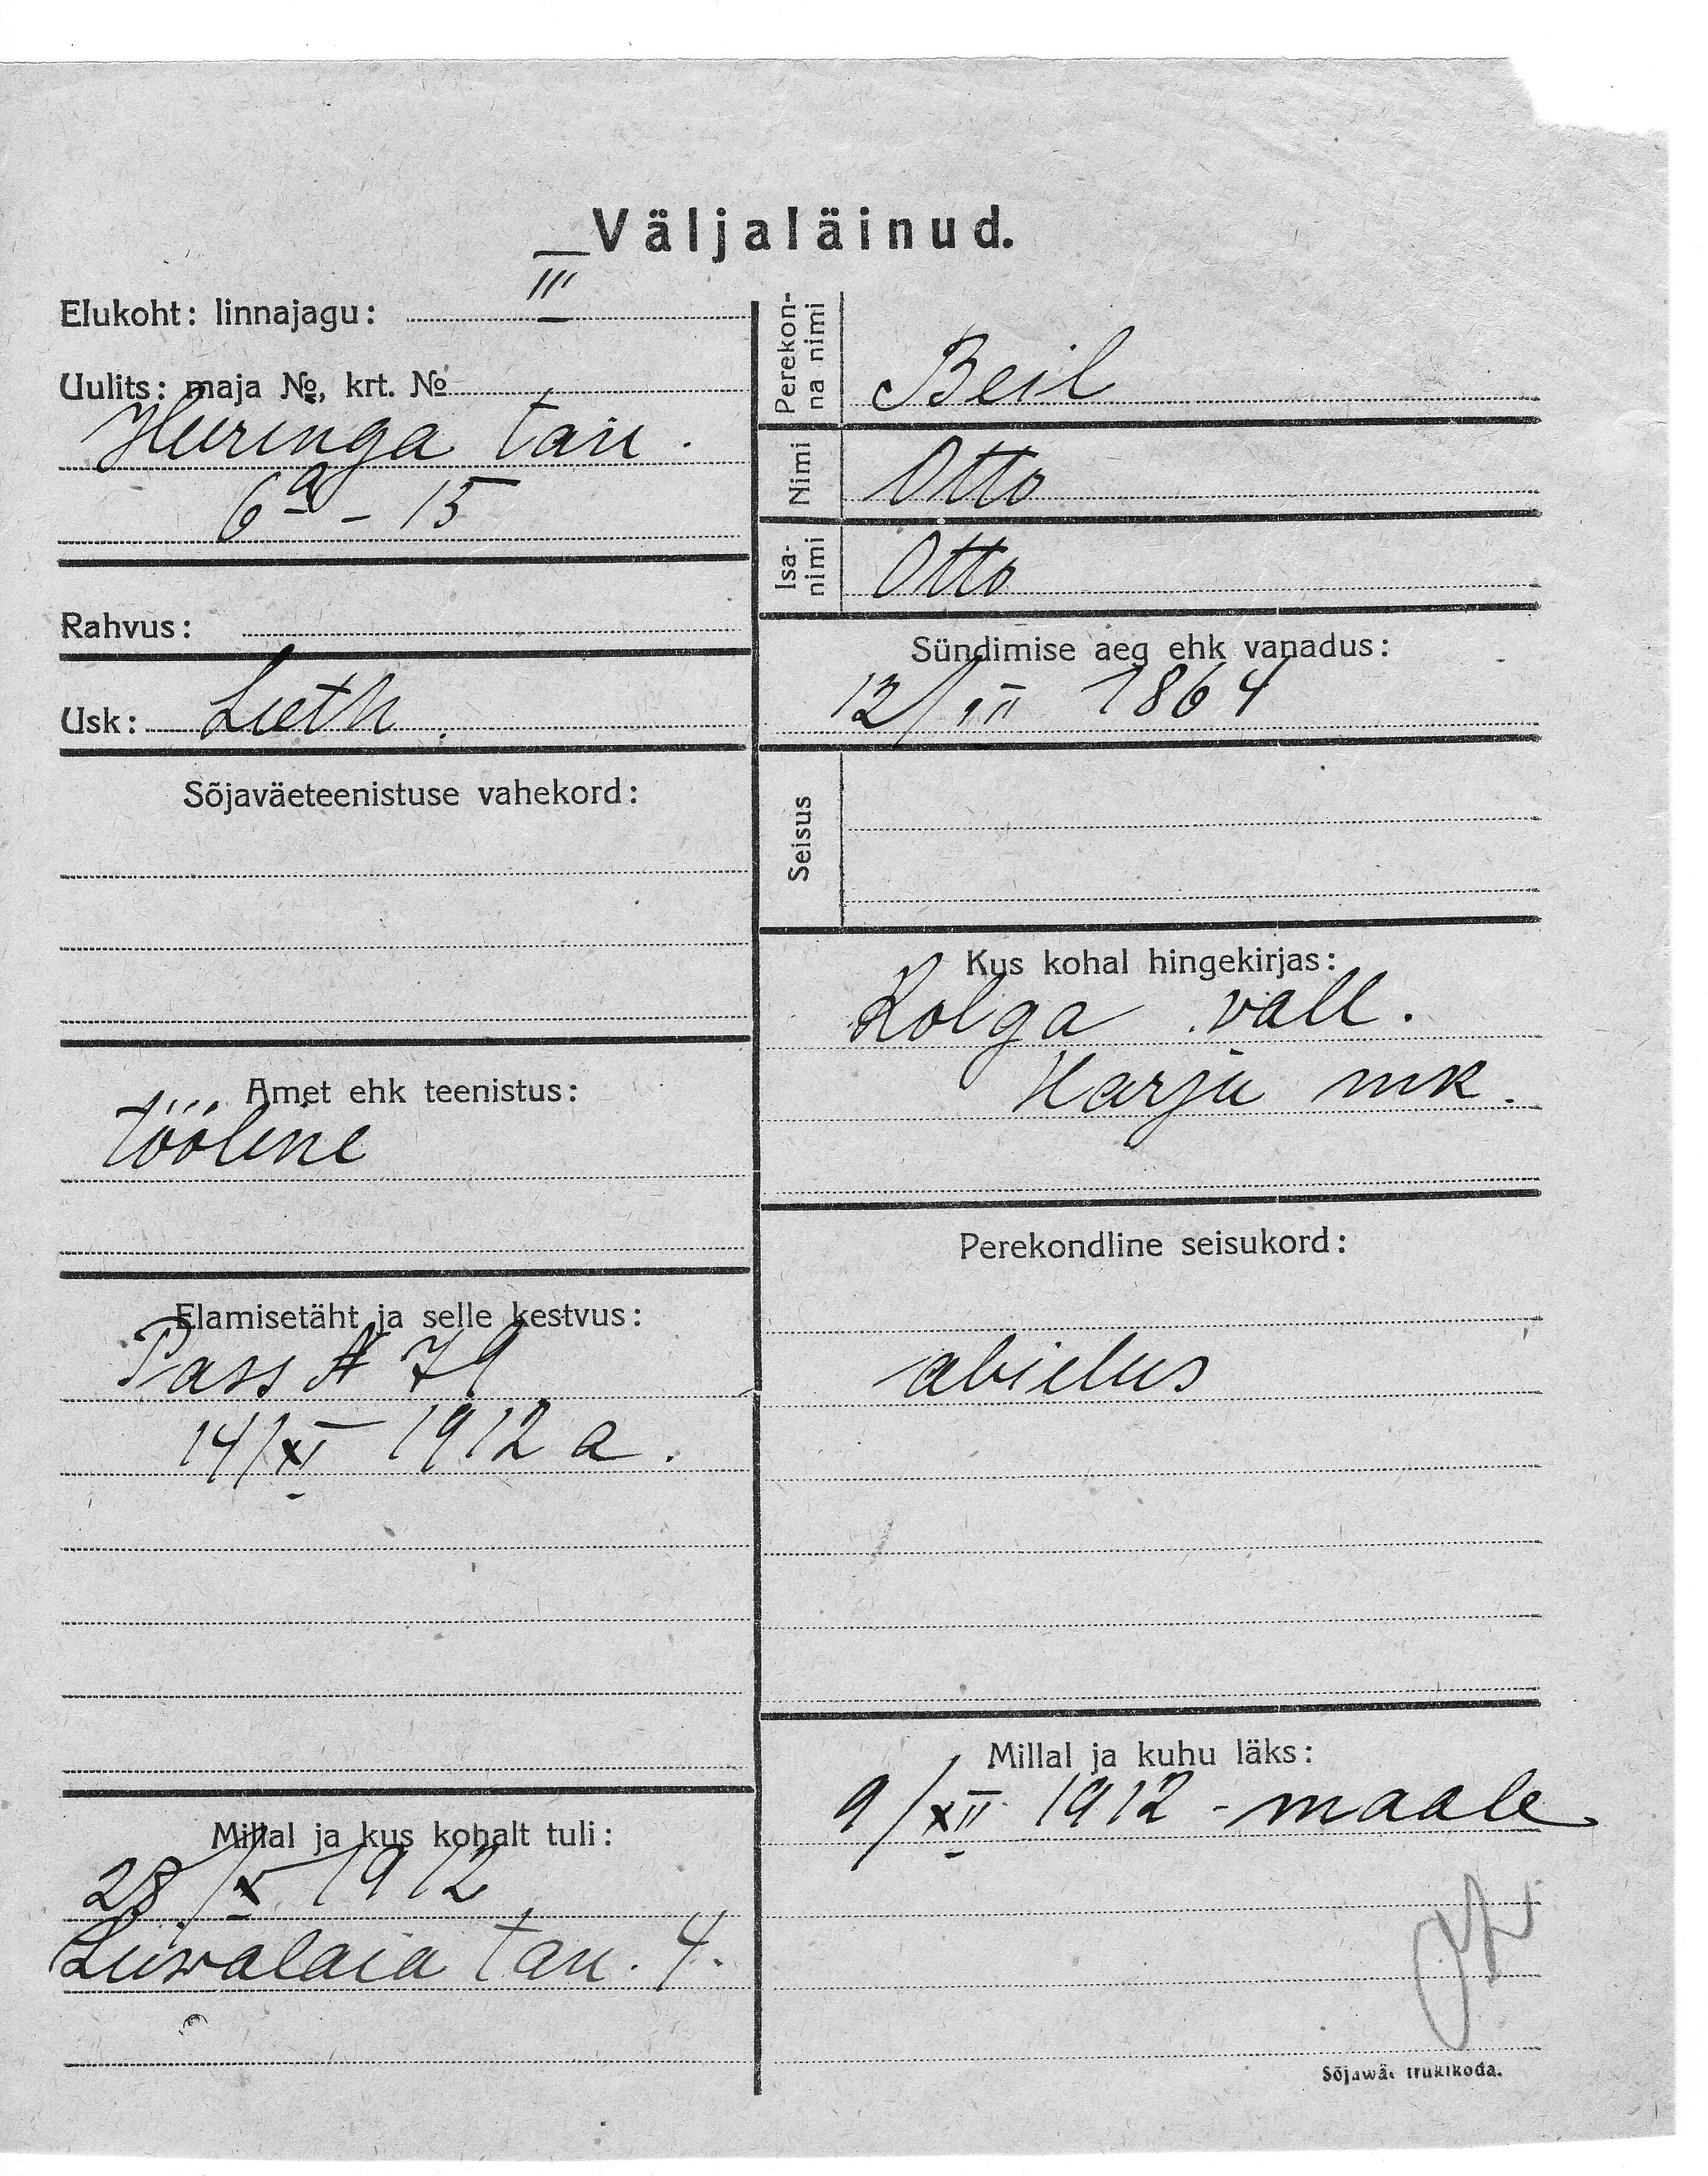 Väljaläinud.
Elukoht: linnajagu: III
Uulits: maja №, krt. №
Heeringa tän.
6a – 15
Rahvus:
Usk: Luth.
Sõjaväeteenistuse vahekord:
Amet ehk teenistus:
Tööline
Elamisetäht ja selle kestvus:
Pass № 79
14/XI 1912 a.
Millal ja kus kohalt tuli:
28/X 1912
Liivalaia tän. 4.
Perekon-
na nimi
Beil
Nimi
Otto
Isa-
nimi
Otto
Sündimise aeg ehk vanadus:
12/III 1864
Seisus
Kus kohal hingekirjas:
Kolga vall.
Harju mk.
Perekondline seisukord:
abielus
Millal ja kuhu läks:
9/XII 1912 - maale
Sõjawäe trükikoda.